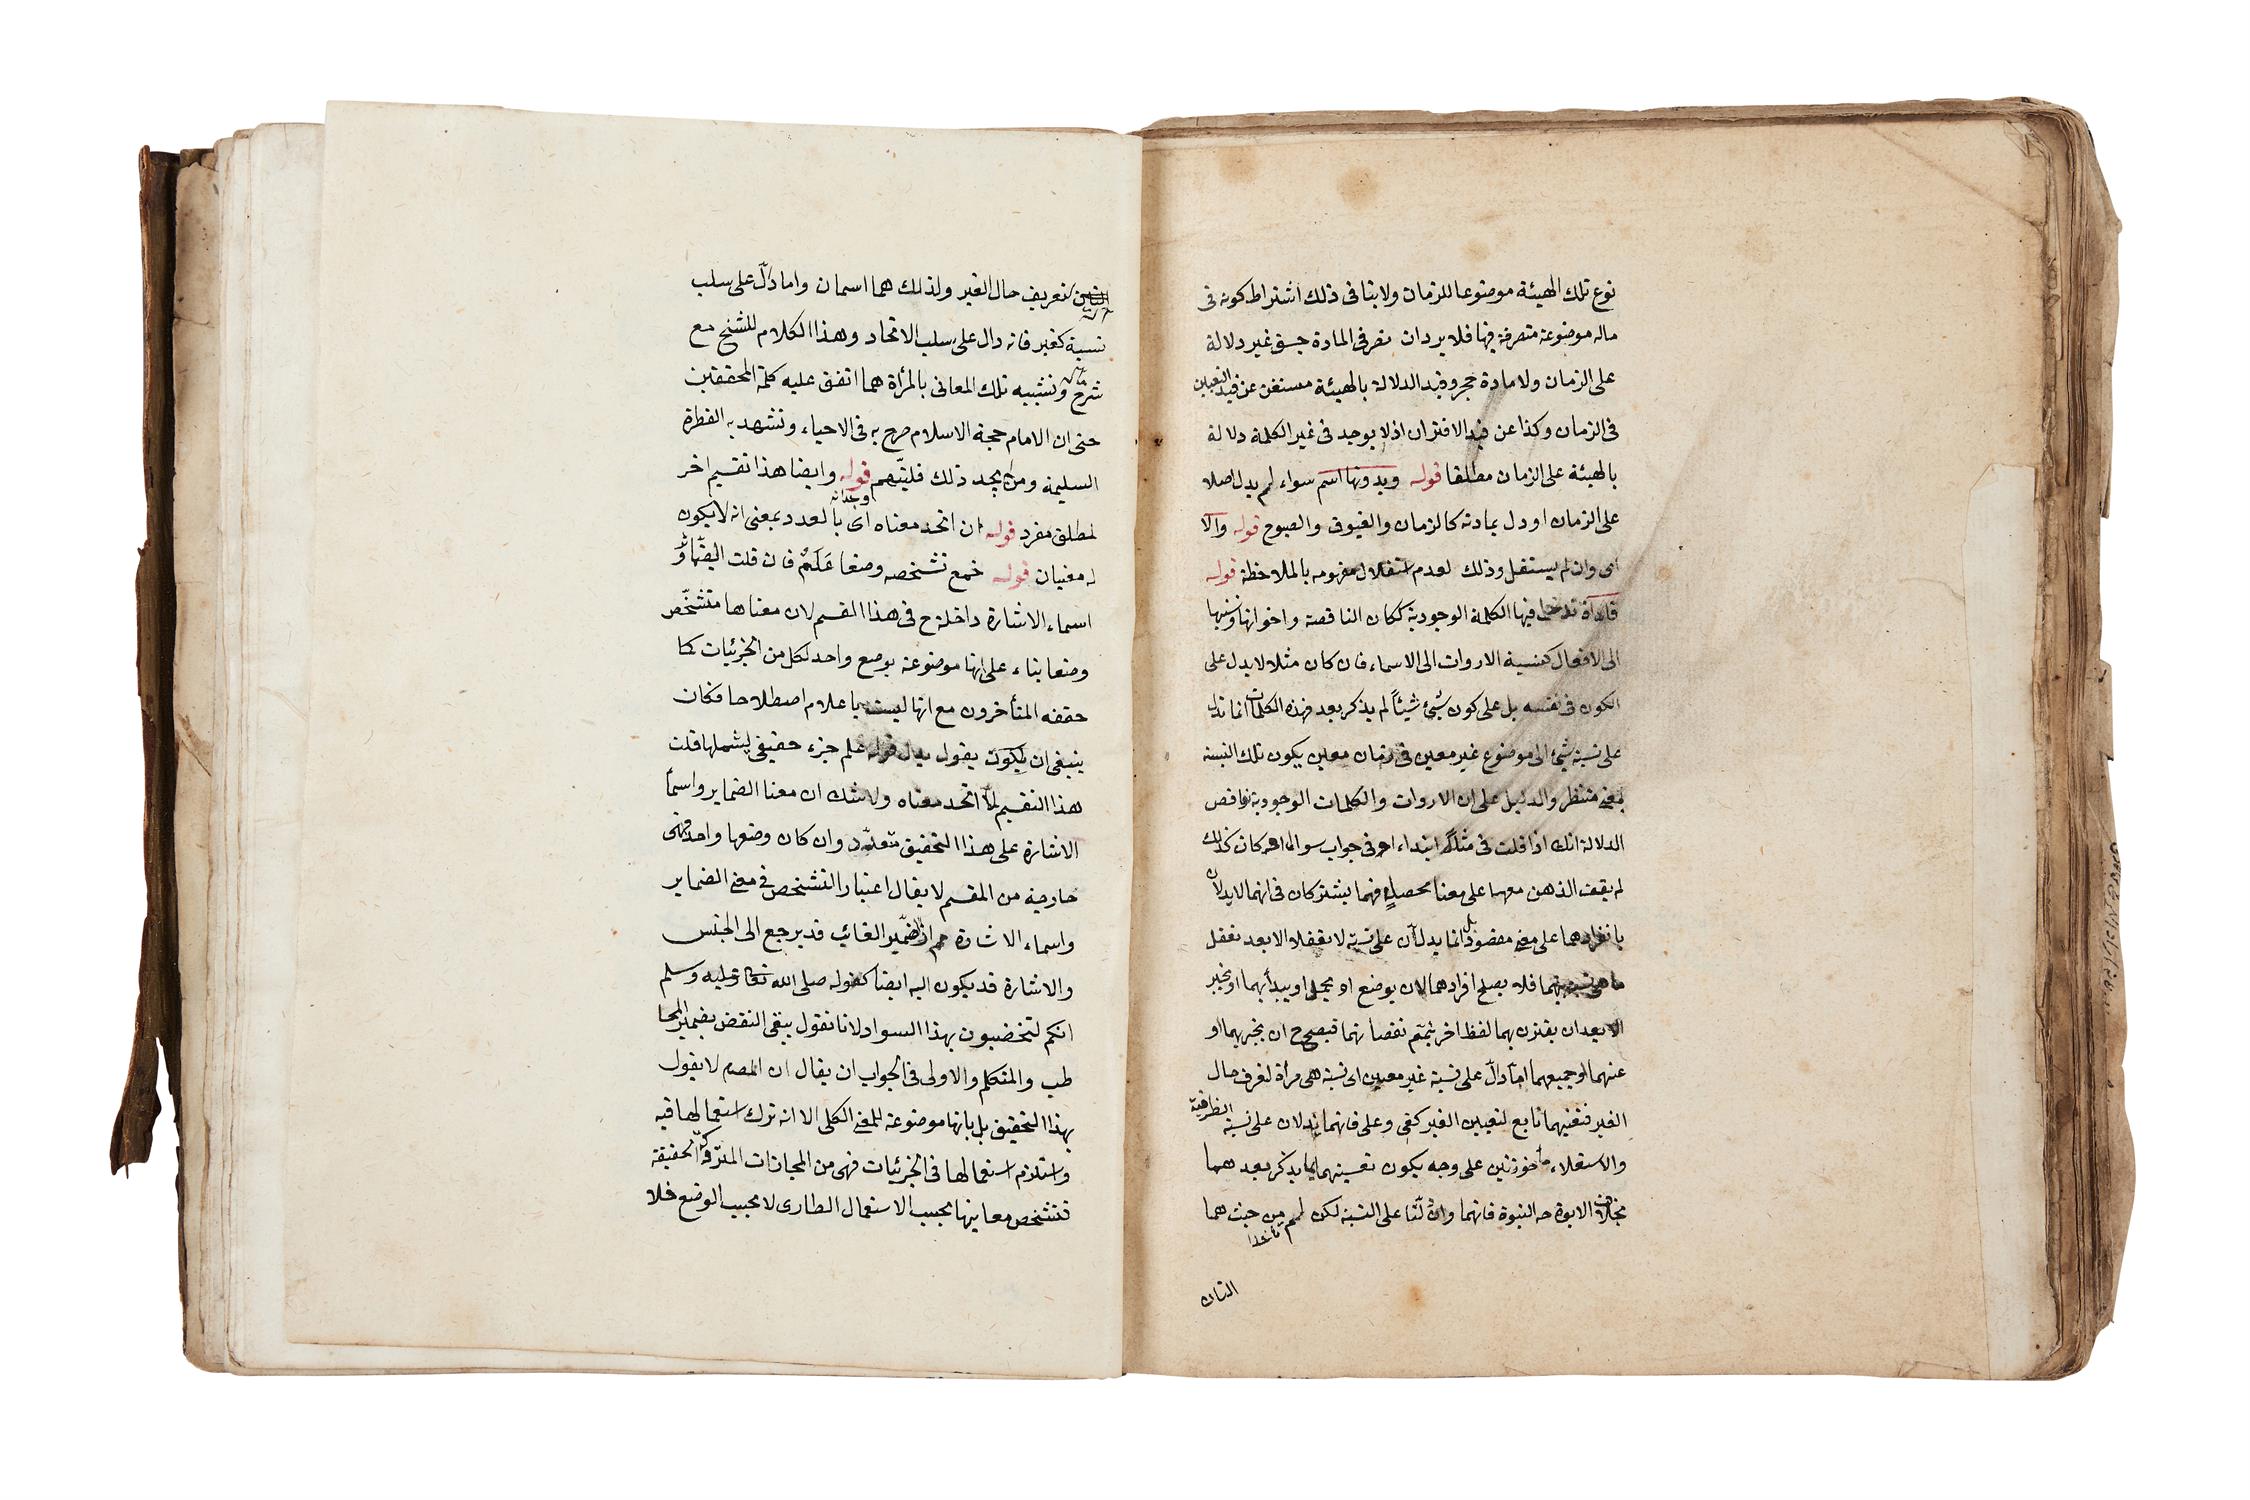 نوع تلك الهيئة موضوعا للزمان ولا ينافى ذلك اشتراط كونه فى
ماله موضوعة متصرفة فيها فلا يرد ان نفر فى المادة جسق غير دلالة
على الزمان ولا مادة حجر وقيد الدلالة بالهيئة مستغن عن قيد التعيين
فى الزمان وكذا عن قيد الاقتران اذ لا يوجد فى غير الكلمة دلالة
بالهيئة على الزمان مطلقا قوله وبدونها اسم سواء لم يدل اصلا
على الزمان او دل بمادته كالزمان والغبوق والصبوح قوله والا
اى وان لم يستقل وذلك لعدم استقلال مفهومه بالملاحظة قوله
فاداة تدخل فيها الكلمة الوجودية ككان الناقصة واخواتها ونسبتها
الى الافعال كنسبة الادوات الى الاسماء فان كان مثلا لا يدل على
الكون فى نفسه بل على كون شئ شيئاً لم يذكر بعد فهذه الكلمات انما تدل
على نسبة شئ الى موضوع غير معين فى زمان معين يكون تلك النسبة
لمعنى منتظر والدليل على ان الادوات والكلمات الوجودية نواقص
الدلالة انك اذا قلت فى مثلاً ابتداء او فى جواب سوال كان كذلك
لم يقف الذهن معهما على معنا محصل فهما يشتركان فى انهما لا يدلان
بانفرادهما على معنى مقصود بل انما يدلان على نسبة لا يعقلا الا بعد تعقل
ما هى نسبة بينهما فلا يصلح افرادهما لان يوضع او يحمل او يبدأ بهما او يخبر
الا بعد ان يقترن بهما لفظ اخر يتمّم نقصانهما فيصح ح ان يخبر بهما او
عنهما او جميعهما امّا دلّ على نسبة غير معين اى نسبة هى مرأة لتعرف حال
الغير فتعينهما تابع لتعيين الغير كفى وعلى فانهما يدلان على نسبة الظرفية
والاستعلاء مأخوذتين على وجه يكون تعينهما بما يذكر بعدهما
بخلاف الابوة والنبوة فانهما وان دلّتا على النسبة لكن لم تأخذا من حيث هما
التان
لتعريف حال الغير ولذلك هما اسمان واما دلّ على سلب
نسبة كغير فانه دال على سلب الاتحاد وهذا الكلام للشيخ مع
شرح وتشبيه تلك المعانى بالمرأة هما اتفق عليه كلمة المحققين
حتى ان الامام حجة الاسلام صرح به فى الاحياء وتشهد به الفطرة
السليمة ومن يجد ذلك فليتّهم وجدانه قوله وايضا هذا تقسيم اخر
لمطلق مفرد قوله ان اتحد معناه اى بالعدد بمعنى انه لا يكون
له معنيان قوله فمع تشخصه وضعا عَلَمٌ فان قلت الضمائر و
اسماء الاشارة داخلة ح فى هذا القسم لان معناها متشخّص
وضعا بناء على انها موضوعة بوضع واحد لكل من الجزئيات كما
حققه المتأخرون مع انها ليست باعلام اصطلاحا فكان
ينبغى ان يكون يقول بدل قوله علم جزء حقيقى يشملها قلت
هذا التقسيم لما اتحد معناه ولا شك ان معنا الضماير واسمأ
الاشارة على هذا التحقيق متعدّد وان كان وضعها واحد فهى
خارجة من المقسم لا يقال اعتبار التشخص فى معنى الضماير
واسماء الاشارة مم اذ الضمير الغائب قد يرجع الى الجنس
والاشارة قد يكون اليه ايضا كقوله صلى الله تعالى عليه وسلم
انكم لتخضبون بهذا السواد لانا نقول يبقى النقض بضمير المخا
طب والمتكلم والاولى فى الجواب ان يقال ان المصم لا يقول
بهذا التحقيق بل بانها موضوعة للمعنى الكلى الا انه ترك استعمالها فيه
واستلزم استعمالها فى الجزئيات فهى من المجازات المتروكة الحقيقة
فتشخص معانيها بحسب الاستعمال الطارى لا بحسب الوضع فلا